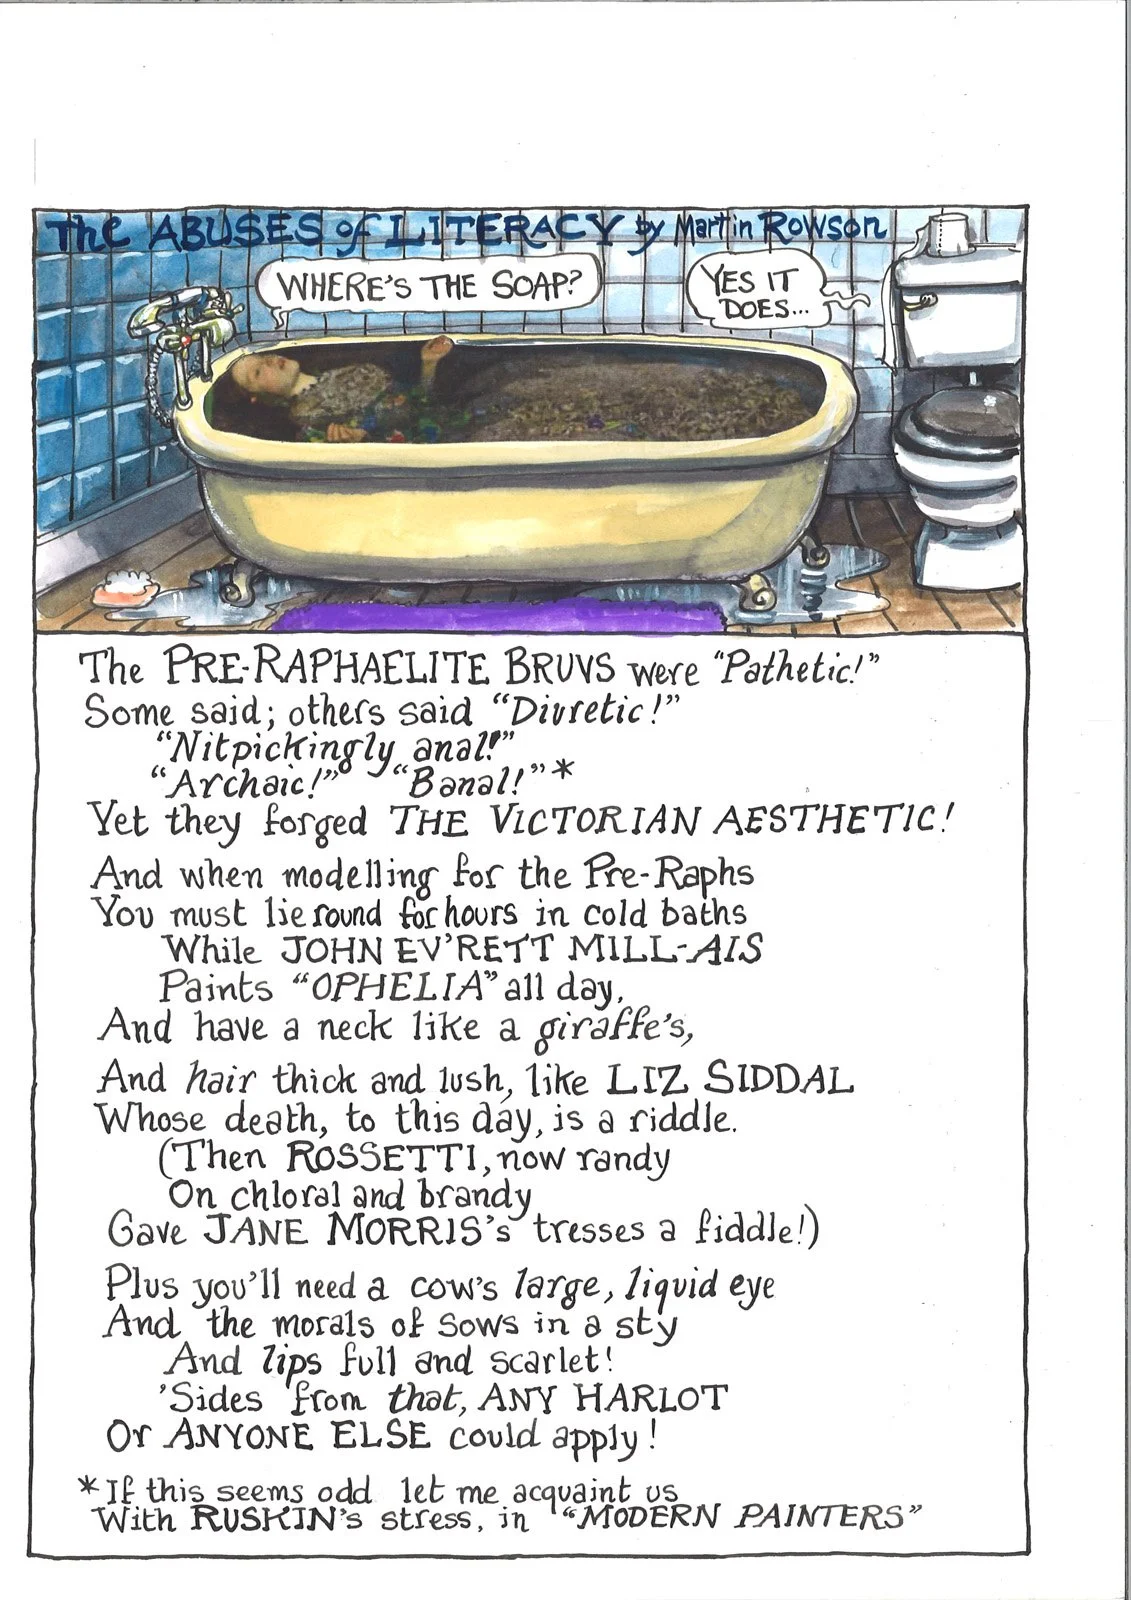 The ABUSES of LITERACY by Martin Rowson
WHERE'S THE SOAP?
YES IT
DOES...
The PRE-RAPHAELITE BRUVS were "Pathetic!"
Some said; others said "Diuretic!"
"Nitpickingly anal!"
"Archaic!" "Banal!"*
Yet they forged THE VICTORIAN AESTHETIC!
And when modelling for the Pre-Raphs
You must lie round for hours in cold baths
While JOHN EV'RETT MILL-AIS
Paints "OPHELIA" all day,
And have a neck like a giraffe's,
And hair thick and lush, like LIZ SIDDAL
Whose death, to this day, is a riddle.
(Then ROSSETTI, now randy
On chloral and brandy
Gave JANE MORRIS's tresses a fiddle!)
Plus you'll need a cow's large, liquid eye
And the morals of sows in a sty
And lips full and scarlet!
'Sides from that, ANY HARLOT
Or ANYONE ELSE could apply!
*If this seems odd let me acquaint us
With RUSKIN's stress, in "MODERN PAINTERS"